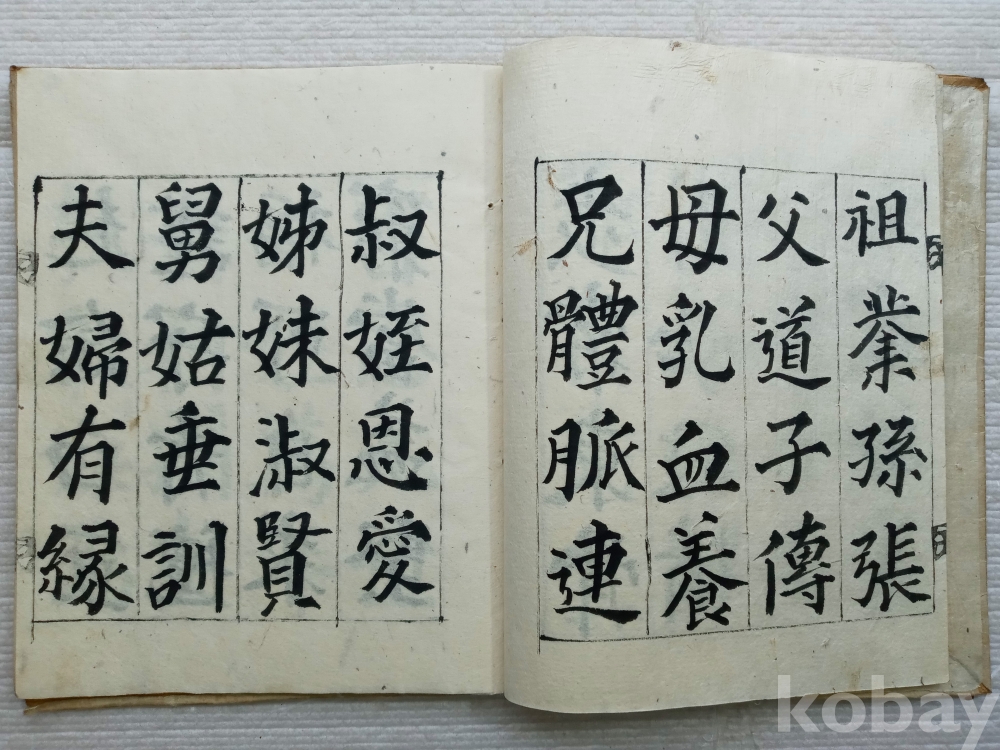 祖業孫張
父道子傳
母乳血養
兄體脈連
叔姪恩愛
姊妹淑賢
舅姑垂訓
夫婦有縁
kobay